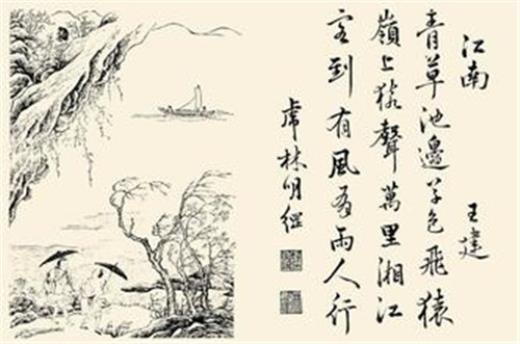 江南
王建
青草池邊草色飛猿
嶺上猿聲萬里湘江
客到有風有雨人行
虎林明